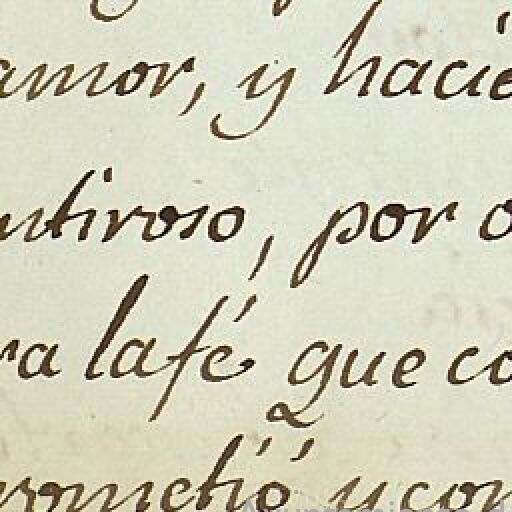 amor, y hacie
ntiroso, por o
ra lafé que co
rometió y con